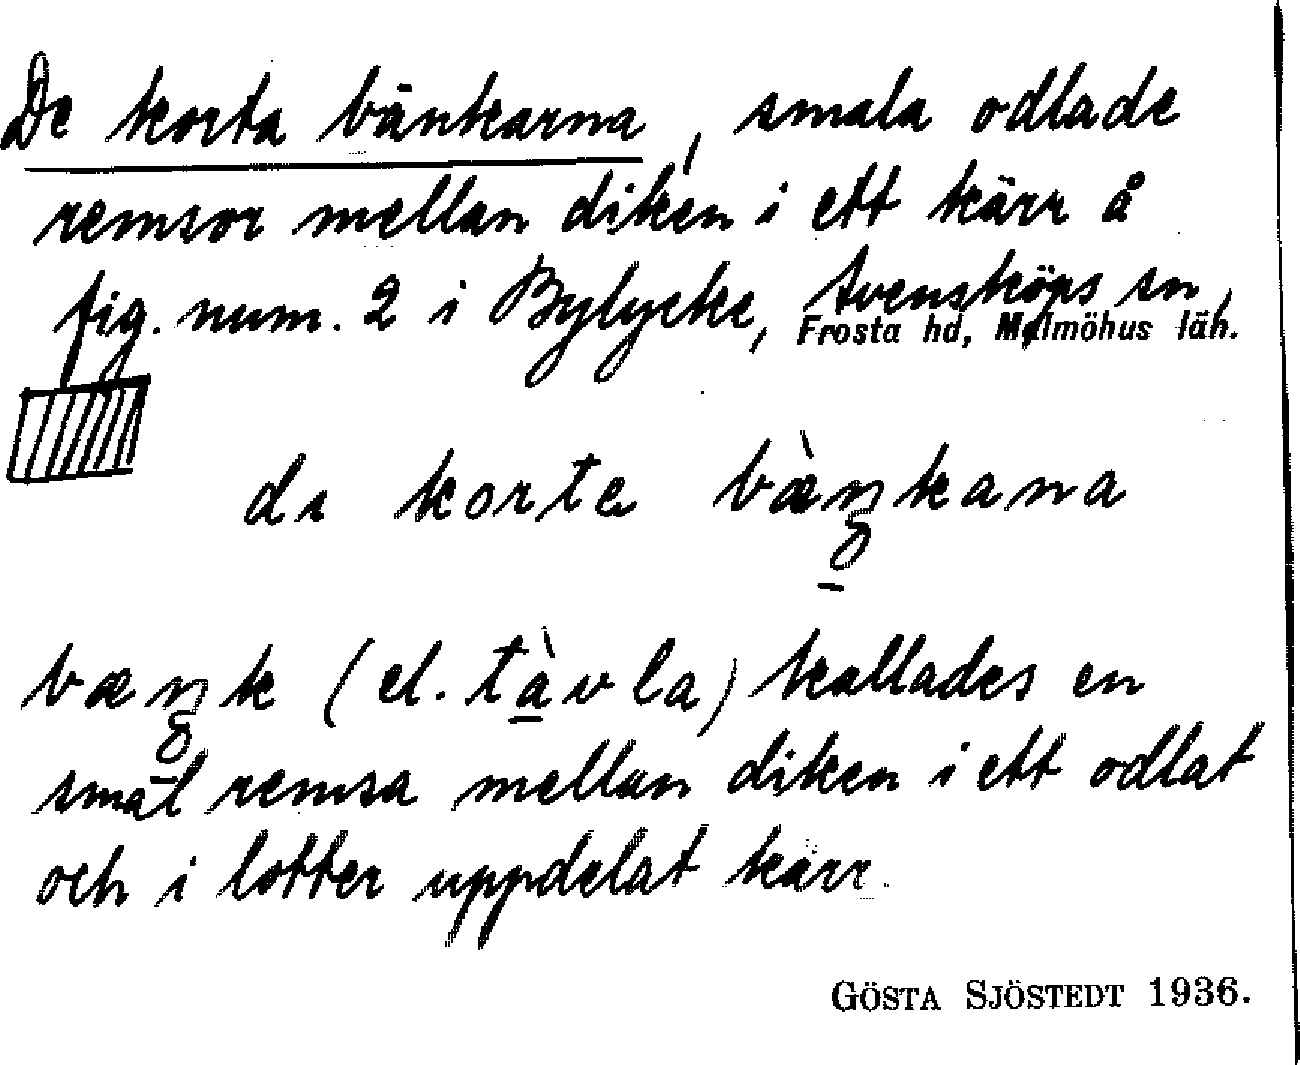 De korta bänkarna, smala odlade
remsor mellan diken i ett kärr å
fig. num. 2 i Bylycke, Svensköps sn,
Frosta hd, Malmöhus län.
di korte bæ̀ŋkana
bæŋk (el. tàvla) kallades en
smal remsa mellan diken i ett odlat
och i lotter uppdelat kärr.
GÖSTA SJÖSTEDT 1936.